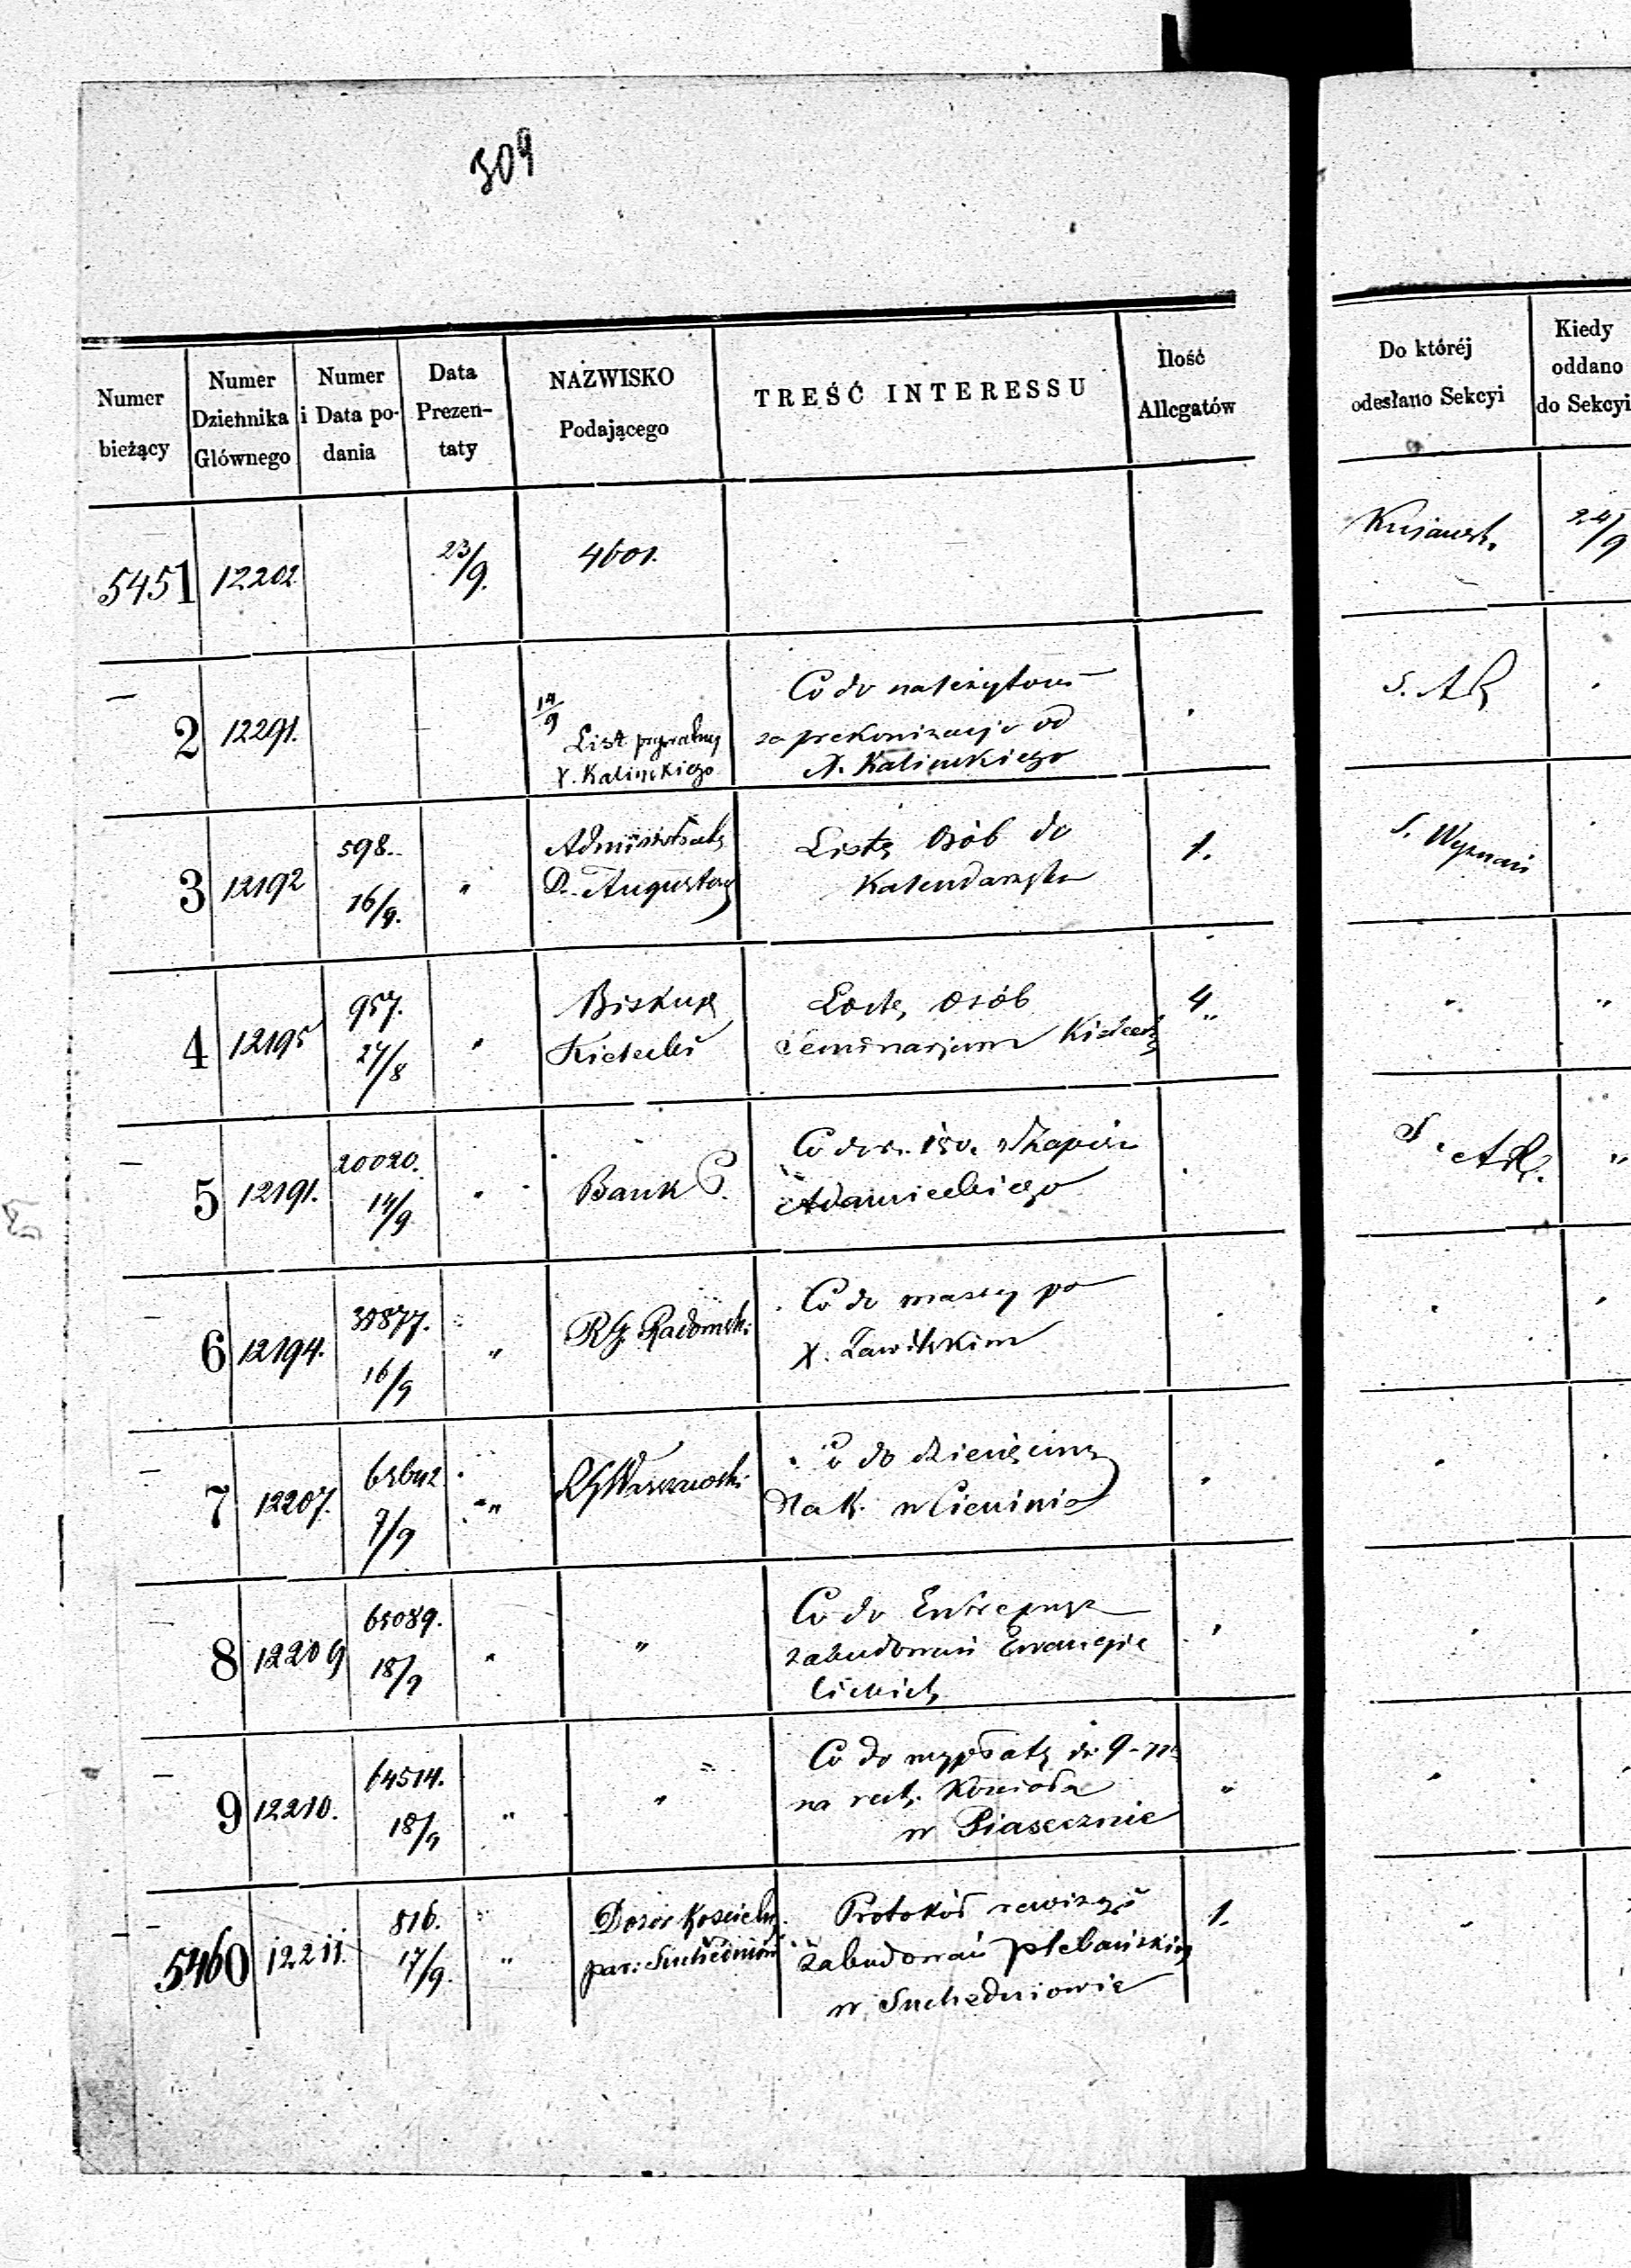 309
Numer bieżący
Numer Dziennika Głównego
Numer i Data podania
Data Prezentaty
NAZWISKO Podającego
TREŚĆ INTERESSU
Ilość Allegatów
Do któréj odesłano Sekcyi
Kiedy oddano do Sekcyi
5451 12202 23/9. 4601. 24/9
2 12291. 14/9
List prywatny
X. Kalinskiego
Co do należytości
za prekonizacje od
X. Kalinskiego
3 12192 598. 16/9. "
Administrator
D. Augustow
Listę Osób do
Kalendarzyka
1.
S. Wyznań
4 12195 957. 27/8 "
Biskup
Kielecki
Listę osób
Seminarjum Kieleck
4 "
5 12191. 20020. 14/9 "
Bank P.
Adamieckiego
6 12194. 30877. 16/9 "
RG. Radomski
Co do massy po
X.
7 12207. 9/9 "
RG Warszawski
Co do dziesięciny
dla K. w Cieninie
8 12209 65089. 18/9 " "
Co do Entrepryzy
zabudowań Ewangie
lickich
9 12210. 64514. 18/9 " "
Co do wypłaty
na rest. Kościoła
w Piasecznie
"
5460 12211. 816. 17/9. "
Dozór Kościelny
par: Suchedniow
Protokół rewizyi
zabudowań plebańskich
w Suchedniowie
1.